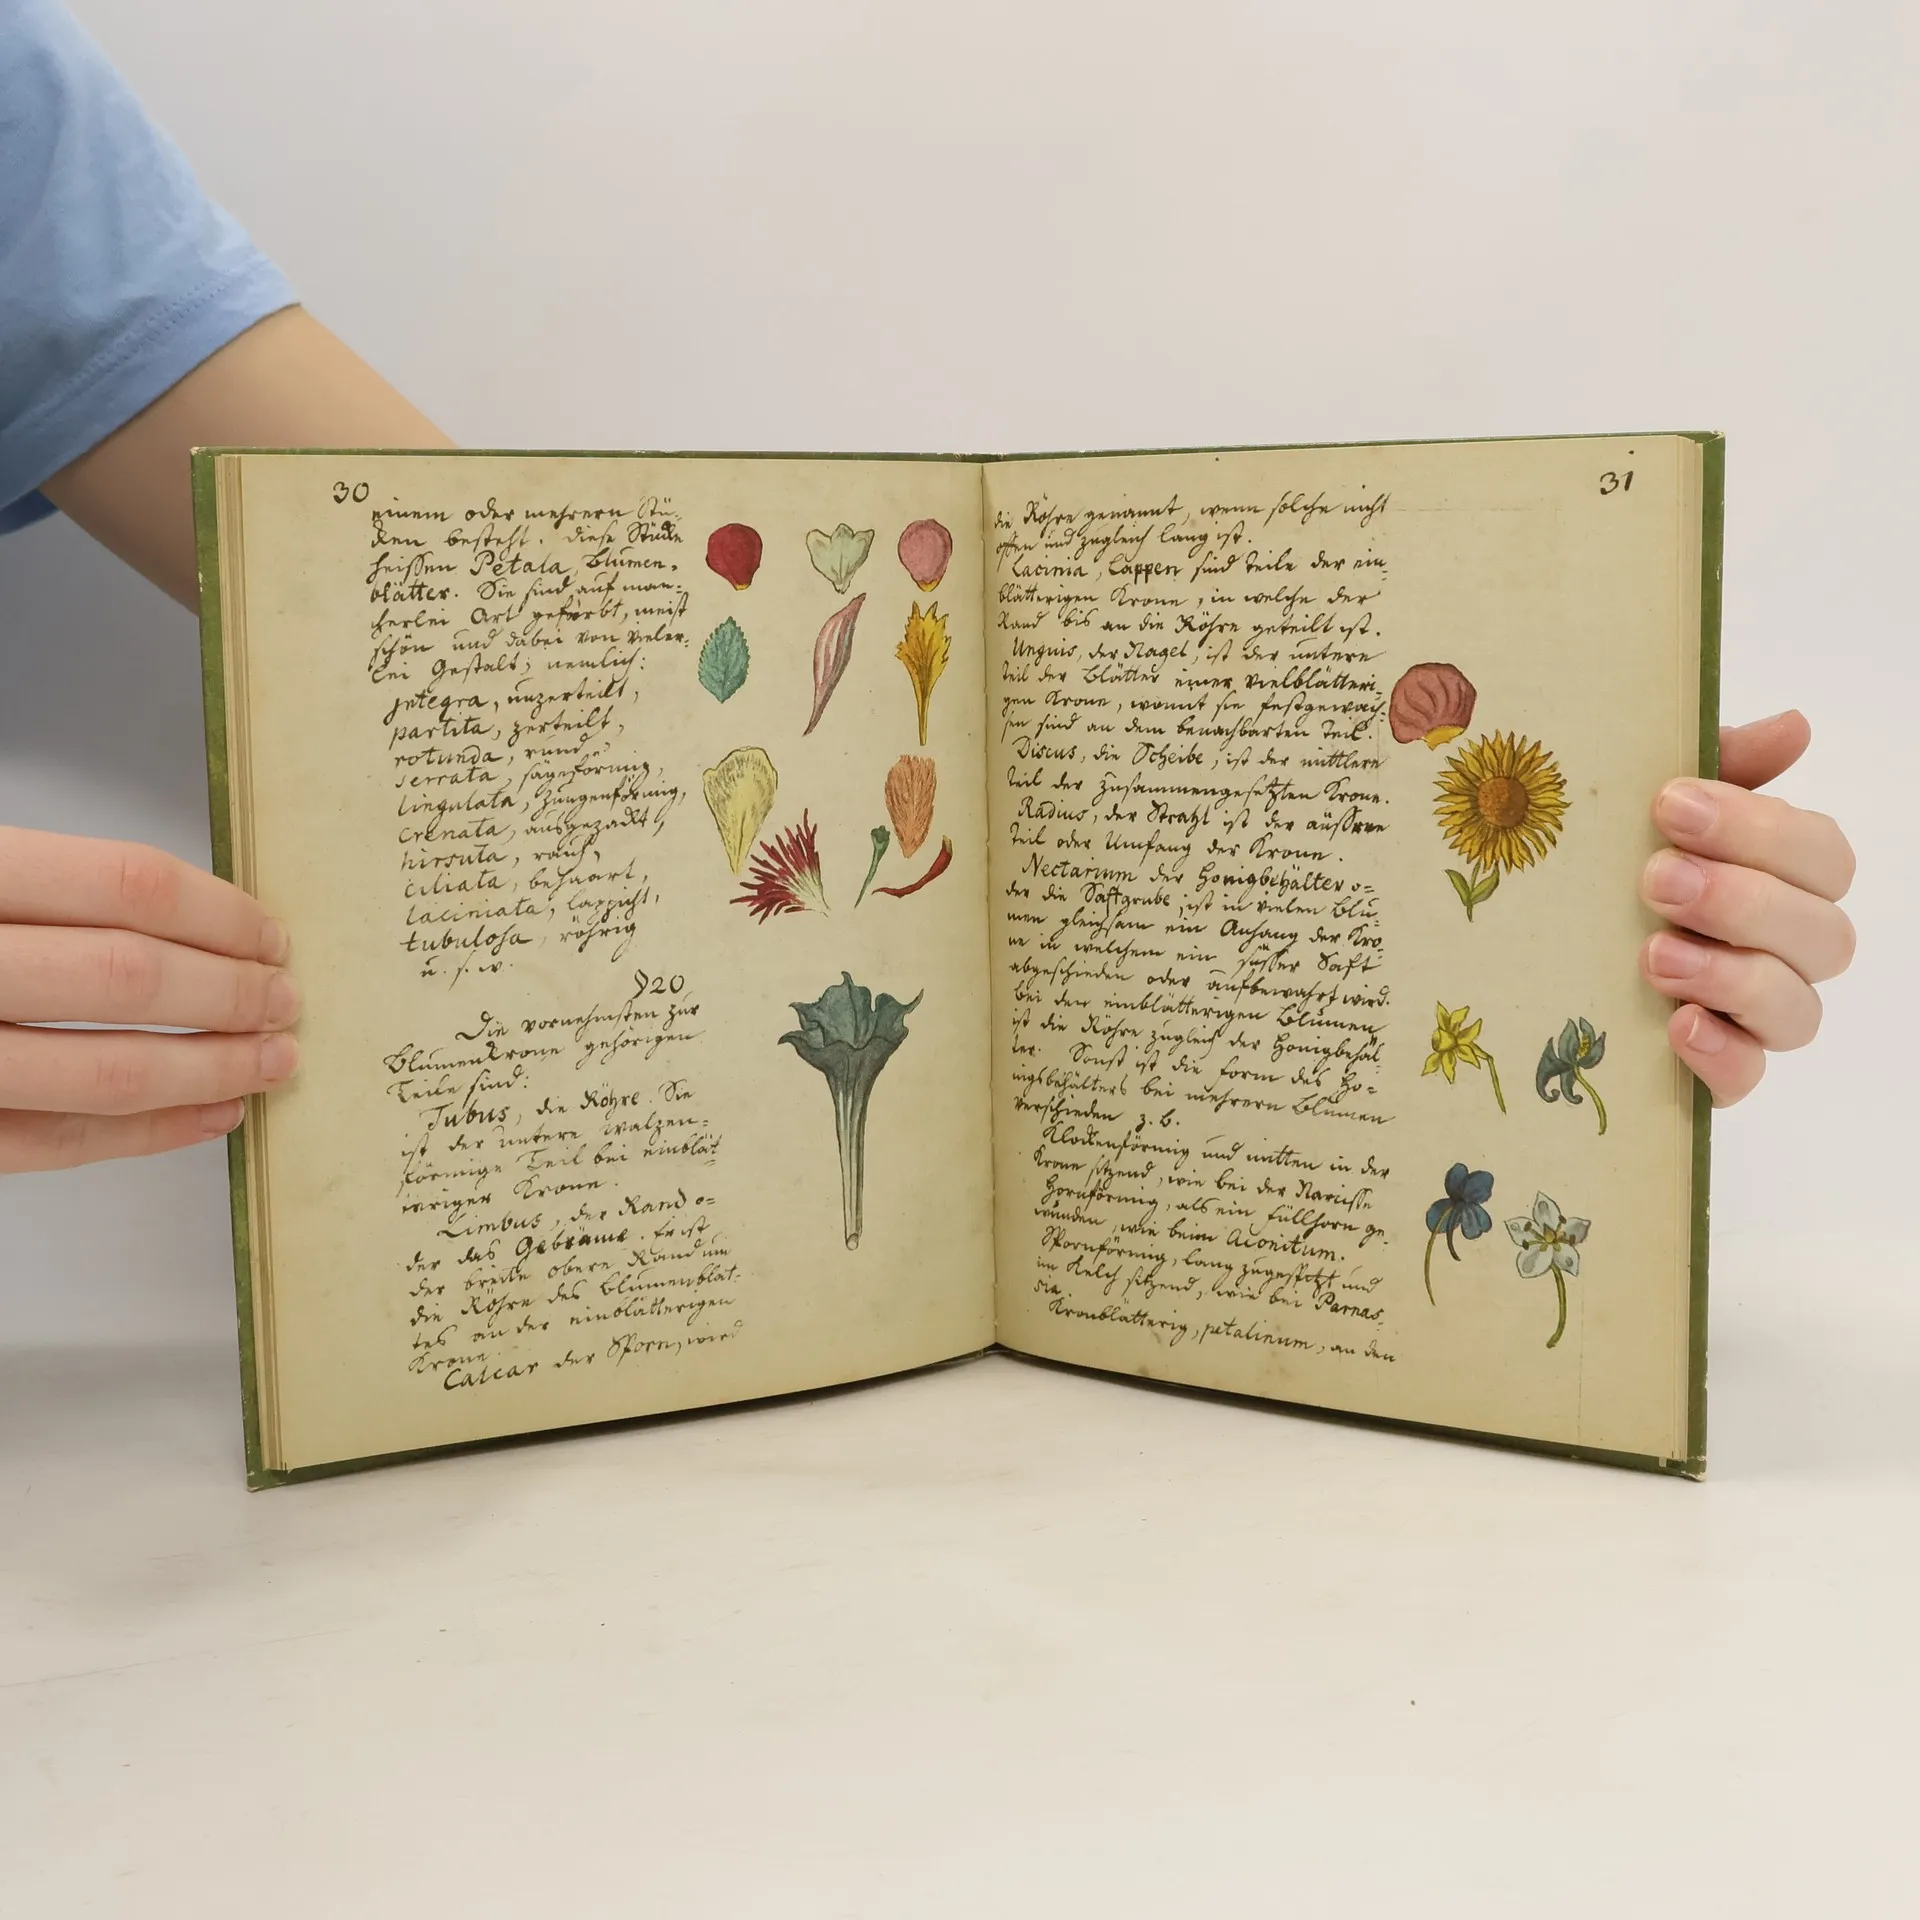 30
einem oder mehrern Stü-
cken besteht. Diese Stücke
heissen Petala, Blumen-
blätter. Sie sind auf man-
cherlei Art gefärbt, meist
schön und dabei von vieler-
lei Gestalt; nemlich:
jntegra, unzerteilt,
partita, zerteilt,
rotunda, rund,
serrata, sägeförmig,
lingulata, zungenförmig,
crenata, ausgezackt,
hirsuta, rauh,
ciliata, behaart,
laciniata, lappicht,
tubulosa, röhrig
u. s. w.
§20
Die vornehmsten zur
Blumenkrone gehörigen
Teile sind:
Tubus, die Röhre. Sie
ist der untere walzen-
förmige Teil bei einblät-
triger Krone.
Limbus, der Rand o=
der das Gebräme. Er ist
der breite obere Rand um
die Röhre des Blumenblat-
tes an der einblätterigen
Krone.
Calcar der Sporn, wird
31
die Röhre genannt, wenn solche nicht
offen und zugleich lang ist.
Lacinia, Lappen sind Teile der ein-
blätterigen Krone, in welche der
Rand bis an die Röhre geteilt ist.
Unguis, der Nagel, ist der untere
Teil der Blätter einer vielblätteri-
gen Krone, womit sie festgewach-
sen sind an dem benachbarten Teil.
Discus, die Scheibe, ist der mittlere
Teil der zusammengesetzten Krone.
Radius, der Strahl ist der äussere
Teil oder Umfang der Krone.
Nectarium der Honigbehälter o=
der die Saftgrube, ist in vielen Blu-
men gleichsam ein Anhang der Kro-
ne in welchem ein süsser Saft
abgeschieden oder aufbewahrt wird.
bei den einblätterigen Blumen
ist die Röhre zugleich der Honigbehäl-
ter. Sonst ist die Form des Ho=
nigsbehälters bei mehrern Blumen
verschieden z. b.
Klockenförmig und mitten in der
Krone sitzend, wie bei der Narcisse
Hornförmig, als ein Füllhorn ge-
wunden, wie beim Aconitum.
Spornförmig, lang zugespitzt und
im Kelch sitzend, wie bei Parnas-
sia.
Kronblätterig, petalinum, an den